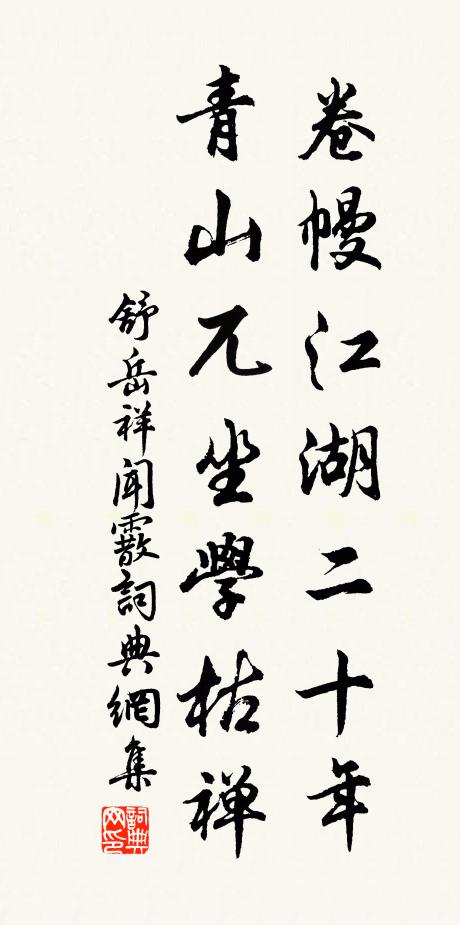 卷幔江湖二十年
青山兀坐學枯禅
舒岳祥聞霰詞典網集
詞典网印